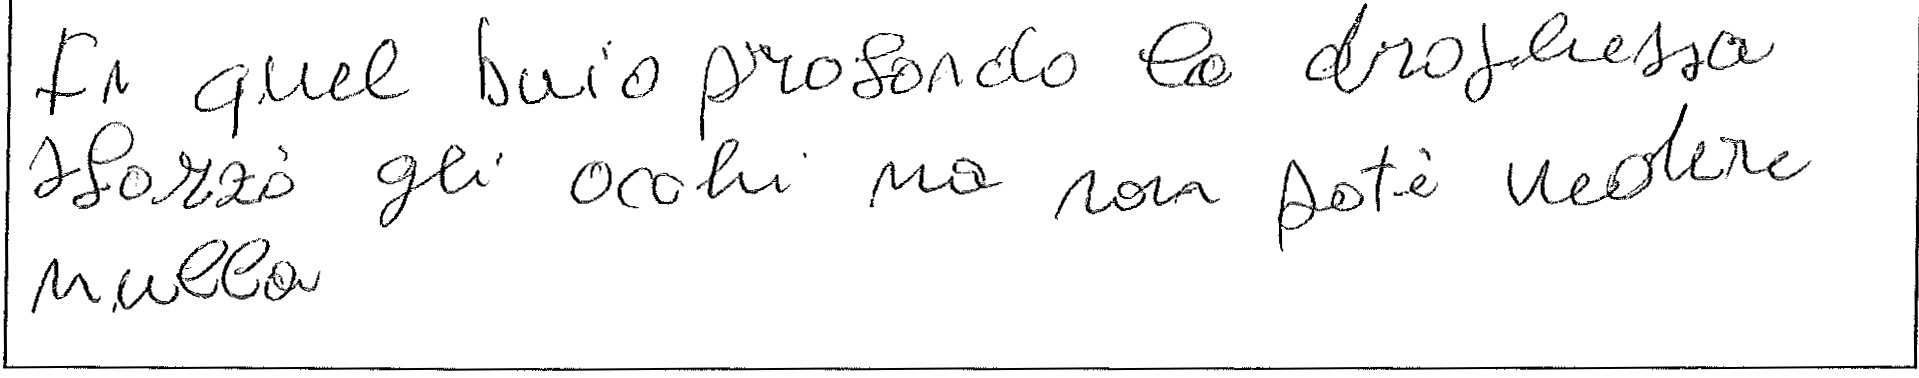 In quel buio profondo la droghessa
sforzò gli occhi ma non poté vedere
nulla